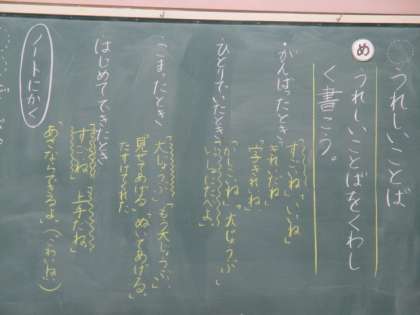 うれしいことば
め
うれしいことばをくわし
く書こう。
・がんばったとき
「すごいね」「いいね」
「きれいだね」
「上手だね」
・ひとりでいたとき
「大じょうぶ」
「いっしょにたべよ」
・こまったとき
「大じょうぶ」「もう大じょうぶ」
「見せてあげる」
たすけてくれた
・はじめてできたとき
「すごいね」「上手だね」
「あきならできるよ」
ノートにかく